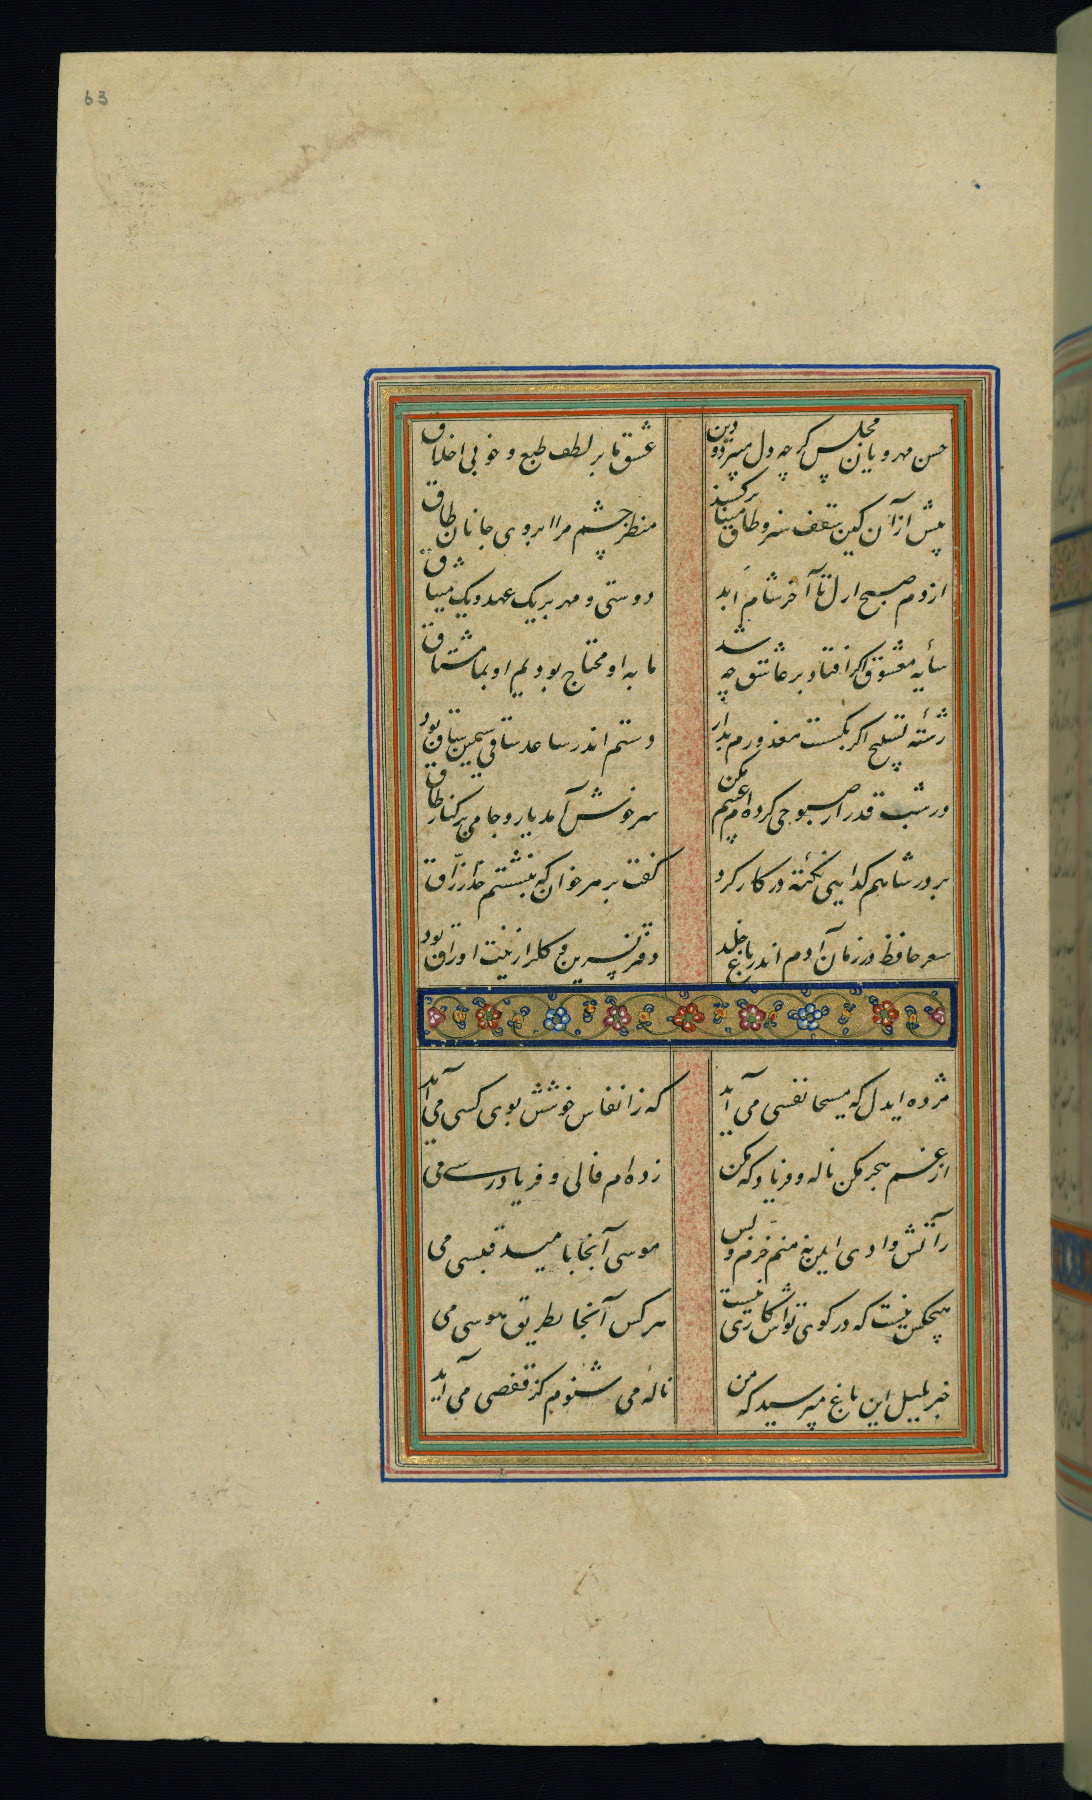 63
حسن مهرویان مجلس گرچه دل میبرد و دین
عشق ما بر لطف طبع و خوبی اخلاق
پیش از آن کین سقف سبز و طاق مینا برکشند
منظر چشم مرا ابروی جانان طاق
از دم صبح ازل تا آخر شام ابد
دوستی و مهر بر یک عهد و یک میثاق
سایه معشوق اگر افتاد بر عاشق چه شد
ما به او محتاج بودیم او بما مشتاق
رشته تسبیح اگر بگسست معذورم بدار
دستم اندر ساعد ساقی سیمین ساق بود
در شب قدر ار صبوحی کرده ام عیبم مکن
سرخوش آمد یار و جامی بر کنار طاق
بر در شاهم گدایی نکته در کار کرد
گفت بر هر خوان که بنشستم خدا رزاق
شعر حافظ در زمان آدم اندر باغ خلد
دفتر نسرین و گل را زینت اوراق بود
مژده ایدل که مسیحا نفسی می آید
که ز انفاس خوشش بوی کسی می آید
از غم هجر مکن ناله و فریاد که من
زده ام فالی و فریاد رسی می
زآتش وادی ایمن نه منم خرم و بس
موسی آنجا بامید قبسی می
هیچکس نیست که در کوی تواش کاری نیست
هر کس آنجا بطریق هوسی می
خبر بلبل این باغ مپرسید که من
ناله می شنوم کز قفسی می آید